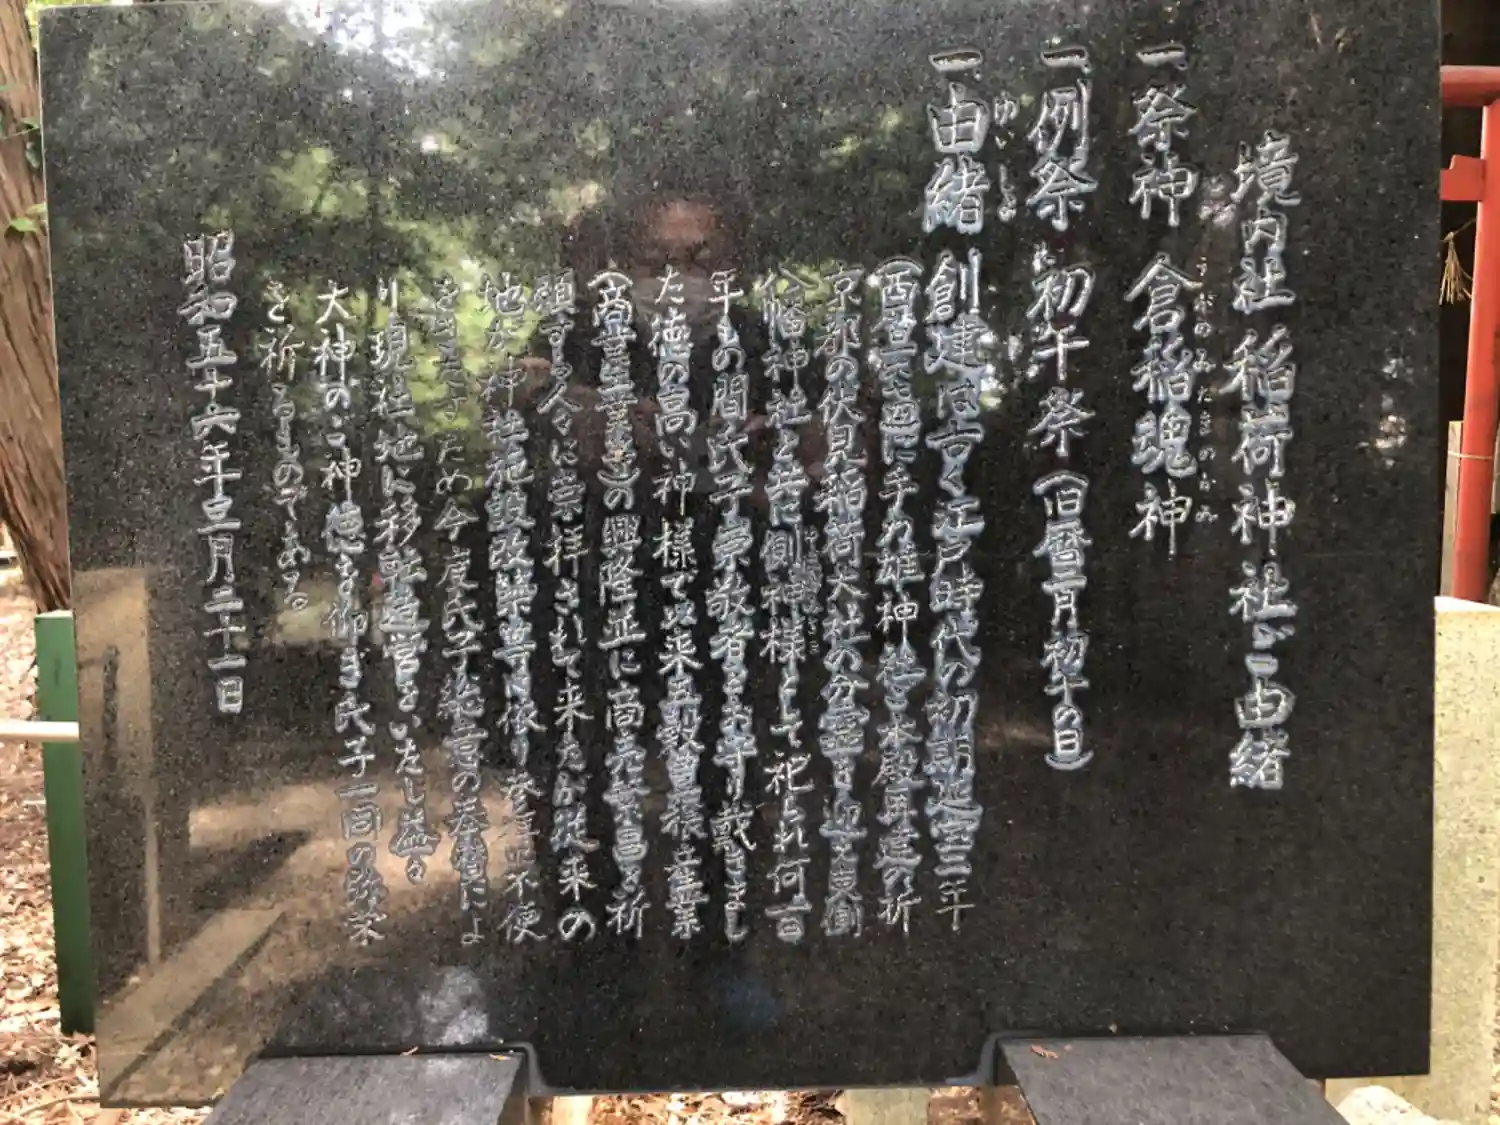 境内社 稲荷神社ご由緒
一、祭神 倉稲魂神
一、例祭 初午祭(旧暦二月初午の日)
一、由緒 創建は古く江戸時代の初期延宝三年
ゆいしよ
(西暦 に手力雄神社を本殿再建の折
京都の伏見稲荷大社の分霊を迎え東側
八幡神社と共に側神様として祀られ何百
年もの間氏子崇敬者をお守り戴きまし
た徳の高い神様で以来五穀豊穣と産業
(商業工業等)の興隆並に商売繁昌を祈
願する人々に崇拝されて来たが従来の
地が神社施設改 等に依り参拝に不便
をきたすため今度氏子総意の奉賛によ
り現社地に移転造営をいたし益々
大神のご神徳を仰ぎ氏子一同の弥栄
を祈るものである。
昭和五十六年三月二十一日